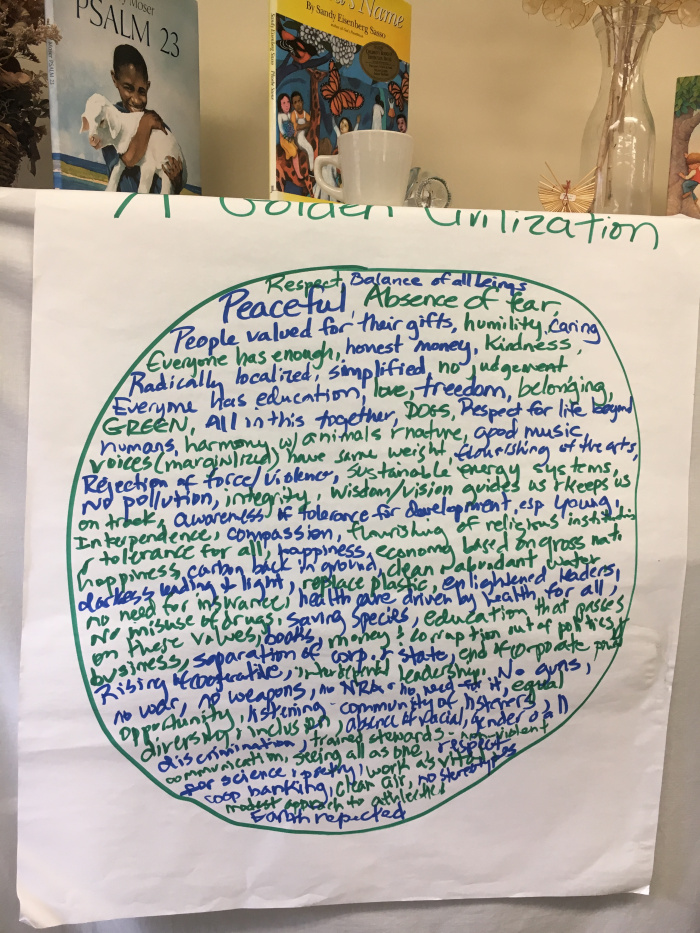 Moser
PSALM 23
's Name
By Sandy Eisenberg Sasso
A Golden Civilization
Respect, Balance of all beings
Peaceful, Absence of fear,
People valued for their gifts, humility, caring
Everyone has enough, honest money, kindness,
Radically localized, simplified, no judgement
Everyone has education, love, freedom, belonging,
GREEN, All in this together, DOGS, Respect for life beyond
humans, harmony w/ animals & nature, good music,
voices (marginlized) have same weight, flourishing of the arts,
Rejection of force/violence, sustainable energy systems,
No pollution, integrity, wisdom/vision guides us & keeps us
on track, awareness & tolerance for development, esp young,
Interpendence, compassion, flourishing of religious
& tolerance for all, happiness, economy based on gross nat'
happiness, carbon back in ground, clean & abundant water
darkness leading to light, replace plastic, enlightened leaders,
no need for insurance, health care driven by health for all,
No misuse of drugs, saving species, education that passes
on these values, books, money & corruption out of politics &
business, separation of corp. & state, end of corporate
Rising of cooperative, leadership, No guns,
no war, no weapons, no NRA & no need for it, equal
opportunity, listening - community of listeners,
diversity, inclusion, absence of racial, gender & all
discrimination, trained stewards - non violent
communication, seeing all as one, respect
for science & poetry, work as vital
coop banking, clean air, no stereotypes
modest approach to athletics
Earth repected